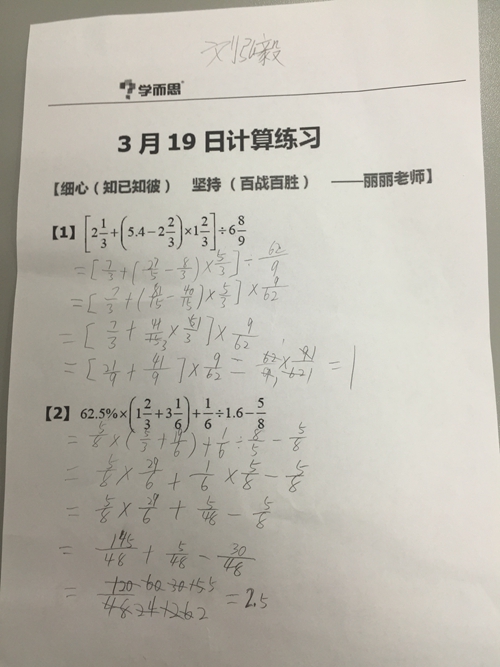 刘弘毅
学而思
3月19日计算练习
【细心（知已知彼） 坚持（百战百胜） ——丽丽老师】
【1】[2 1/3+(5.4-2 2/3)×1 2/3]÷6 8/9
=[7/3+(27/5-8/3)×5/3]÷62/9
=[7/3+(81/15-40/15)×5/3]×9/62
=[7/3+41/15×5/3]×9/62
=[21/9+41/9]×9/62=62/9×9/62=1
【2】62.5%×(1 2/3+3 1/6)+1/6÷1.6-5/8
=5/8×(5/3+19/6)+1/6÷8/5-5/8
=5/8×29/6+1/6×5/8-5/8
=5/8×29/6+5/48-5/8
=145/48+5/48-30/48
=120/48=2.5